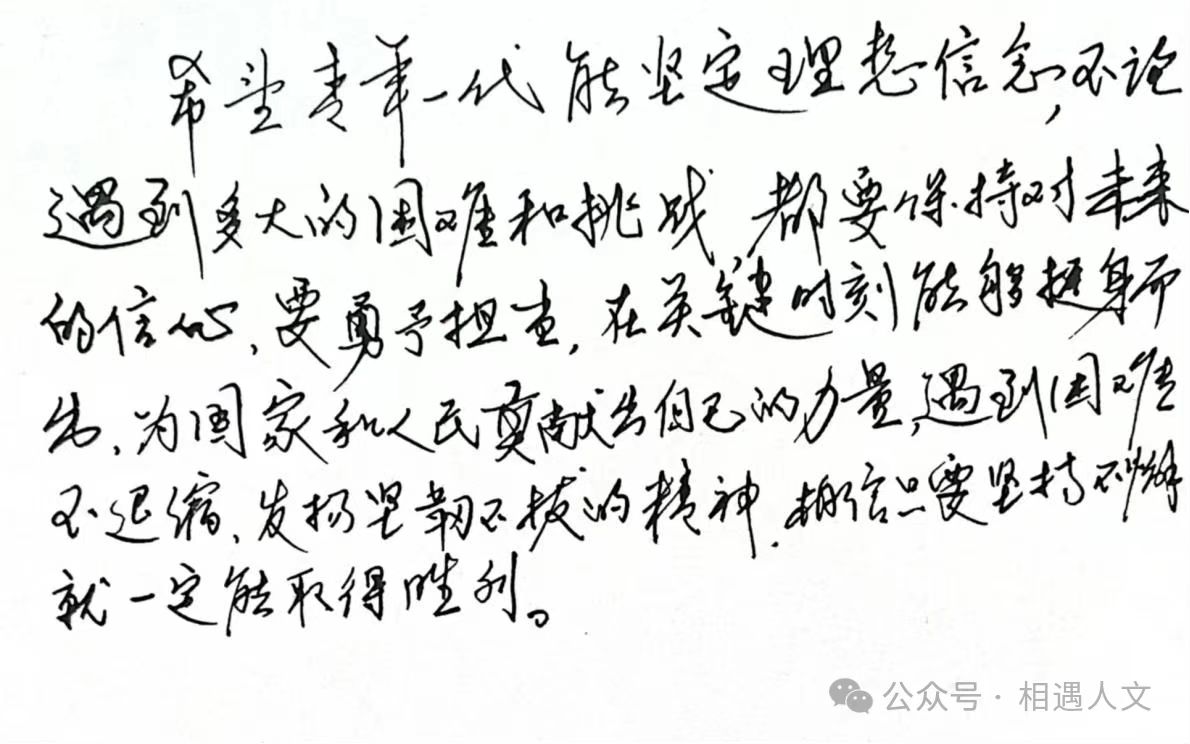 希望青年一代能坚定理想信念,不论
遇到多大的困难和挑战,都要保持对未来
的信心,要勇于担当,在关键时刻能够挺身而
出,为国家和人民奠献出自己的力量,遇到困难
不退缩,发扬坚韧不拔的精神,相信只要坚持不懈
就一定能取得胜利。
公众号·相遇人文